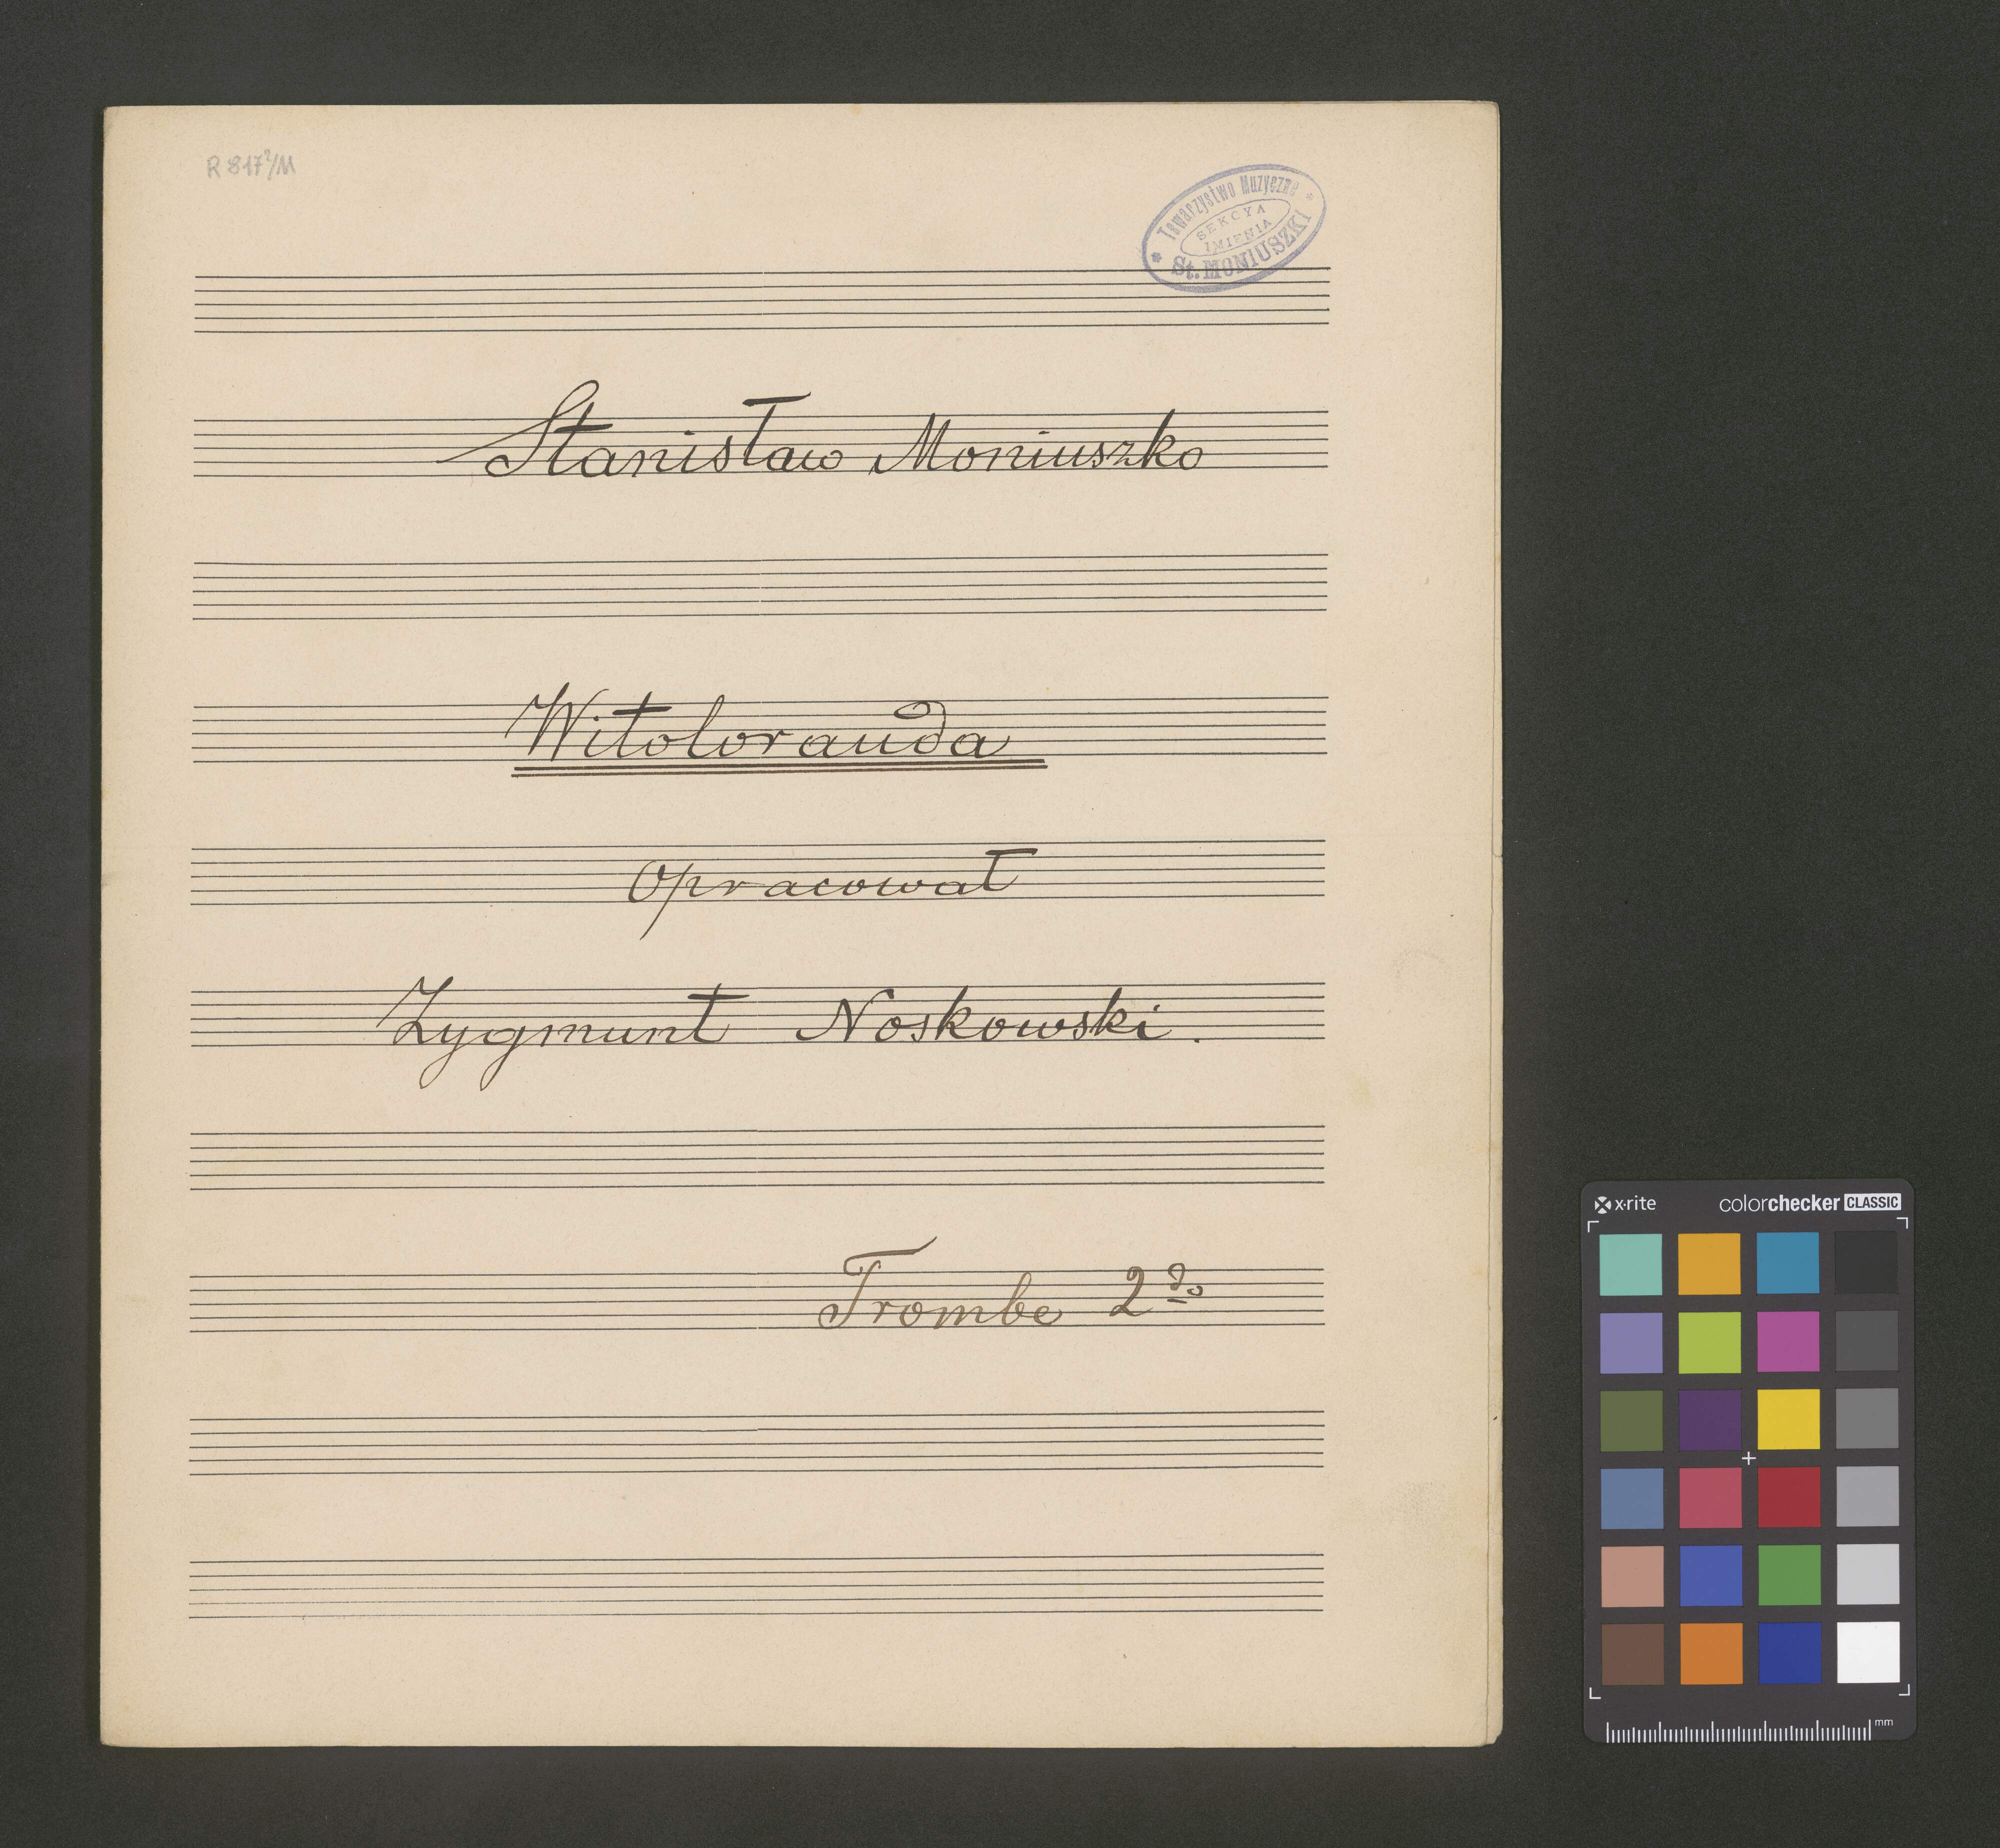 R 817²/M
Towarzystwo Muzyczne
SEKCYA
IMIENIA
St. MONIUSZKI
Stanisław Moniuszko
Witolorauda
Opracował
Zygmunt Noskowski.
Trombe 2do
x·rite colorchecker CLASSIC
mm